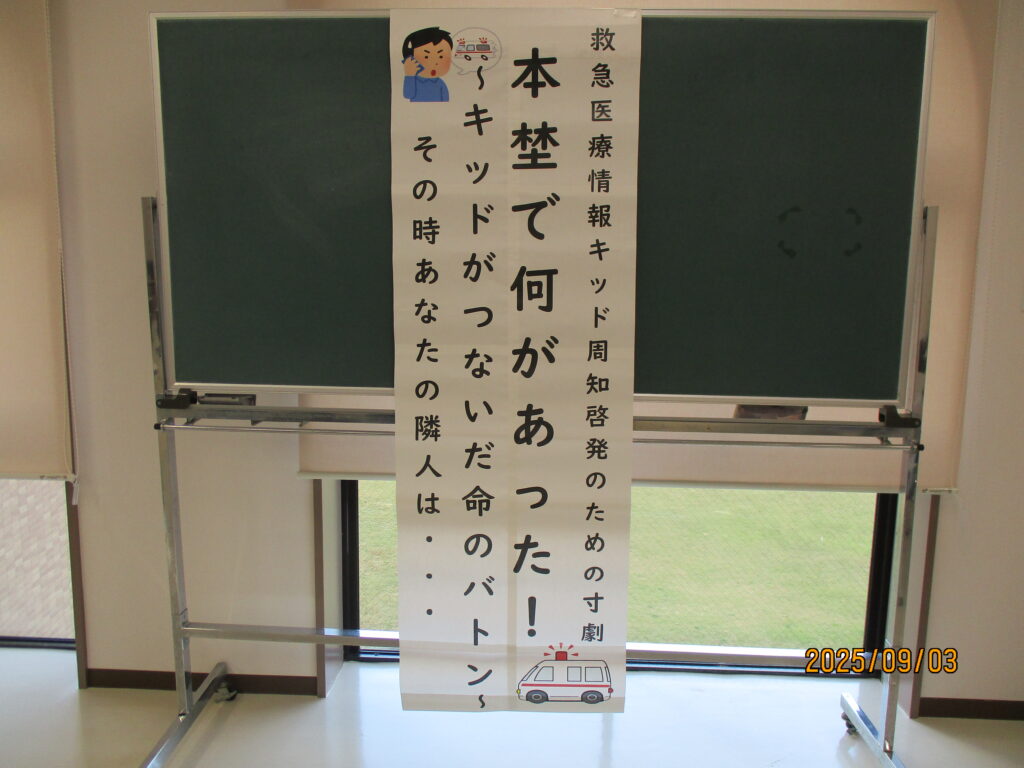 救急医療情報キッド周知啓発のための寸劇
本埜で何があった！
～キッドがつないだ命のバトン～
その時あなたの隣人は・・・
2025/09/03